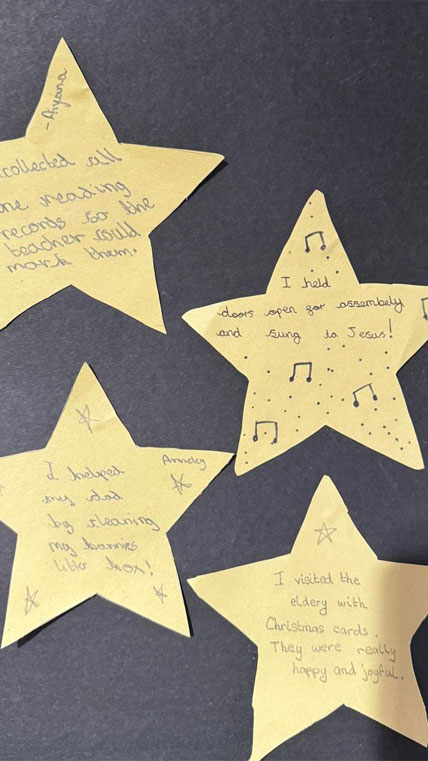 -Aiyana
collected all
the reading
records so the
teacher could
mark them.
I held
doors open for assembely
and sung to Jesus!
Anneley
I helped
my dad
by cleaning
my bunnies
litter box!
I visited the
eldery with
Christmas cards.
They were really
happy and joyful.